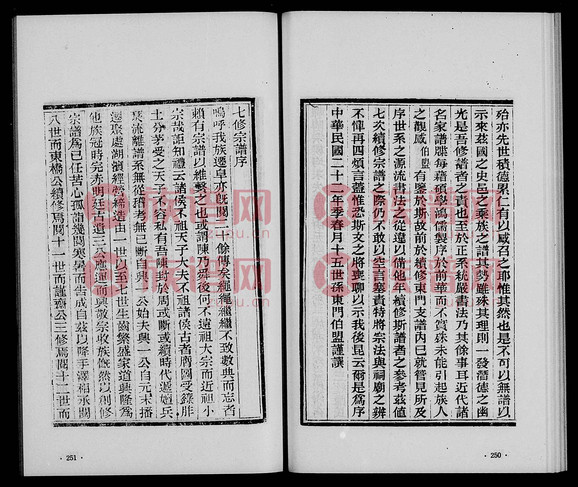 殆亦先世積德累仁有以感召之耶惟其然也是不可以無譜以
示來茲國之史邑之乘族之譜其勢雖殊其理則一發潛德之幽
光是吾修譜者之責也至於正系統嚴書法乃其餘事耳近代諸
名家譜牒每藉碩學鴻儒製序於前華而不實殊未能引起族人
之觀感伯盟有鑒於斯故前於續修東門支譜內已就管見所及
序世系之源流書法之從違以備他年續修斯譜者之參考茲値
七次續修宗譜之際仍不敢以空言塞責特將宗法與祠廟之辨
不憚再四煩言蓋惟恐斯文之將喪聊以示我後昆云爾是爲序
中華民國二十年季春月十五世孫東門伯盟謹譔
· 250 ·
七修宗譜序
嗚呼我族遷阜亦旣閱二十餘傳矣繩繩繼繼不致數典而忘者
賴有宗譜以維繫之也或謂陳乃舜後何不遠祖大宗而近祖小
宗哉詎知禮云諸侯不祖天子大夫不祖諸侯古者膺國受籙胙
土分茅受之天子不容私有吾陳封於周或斷或續時代遞嬗兵
燹流離譜系無從稽考無已斷自興一公始夫興一公自元末播
遷聚處湖濱經營締造由一世以至七世生齒繁盛家道興隆爲
他族冠時完赤明廷古遺三公應運而興敦宗收族慨然以創修
宗譜爲已任苦心孤詣幾閱寒暑而告成自茲以降手澤相承閱
八世而東橋公續修焉閱十一世而謹齋公三修焉閱十二世而
· 251 ·